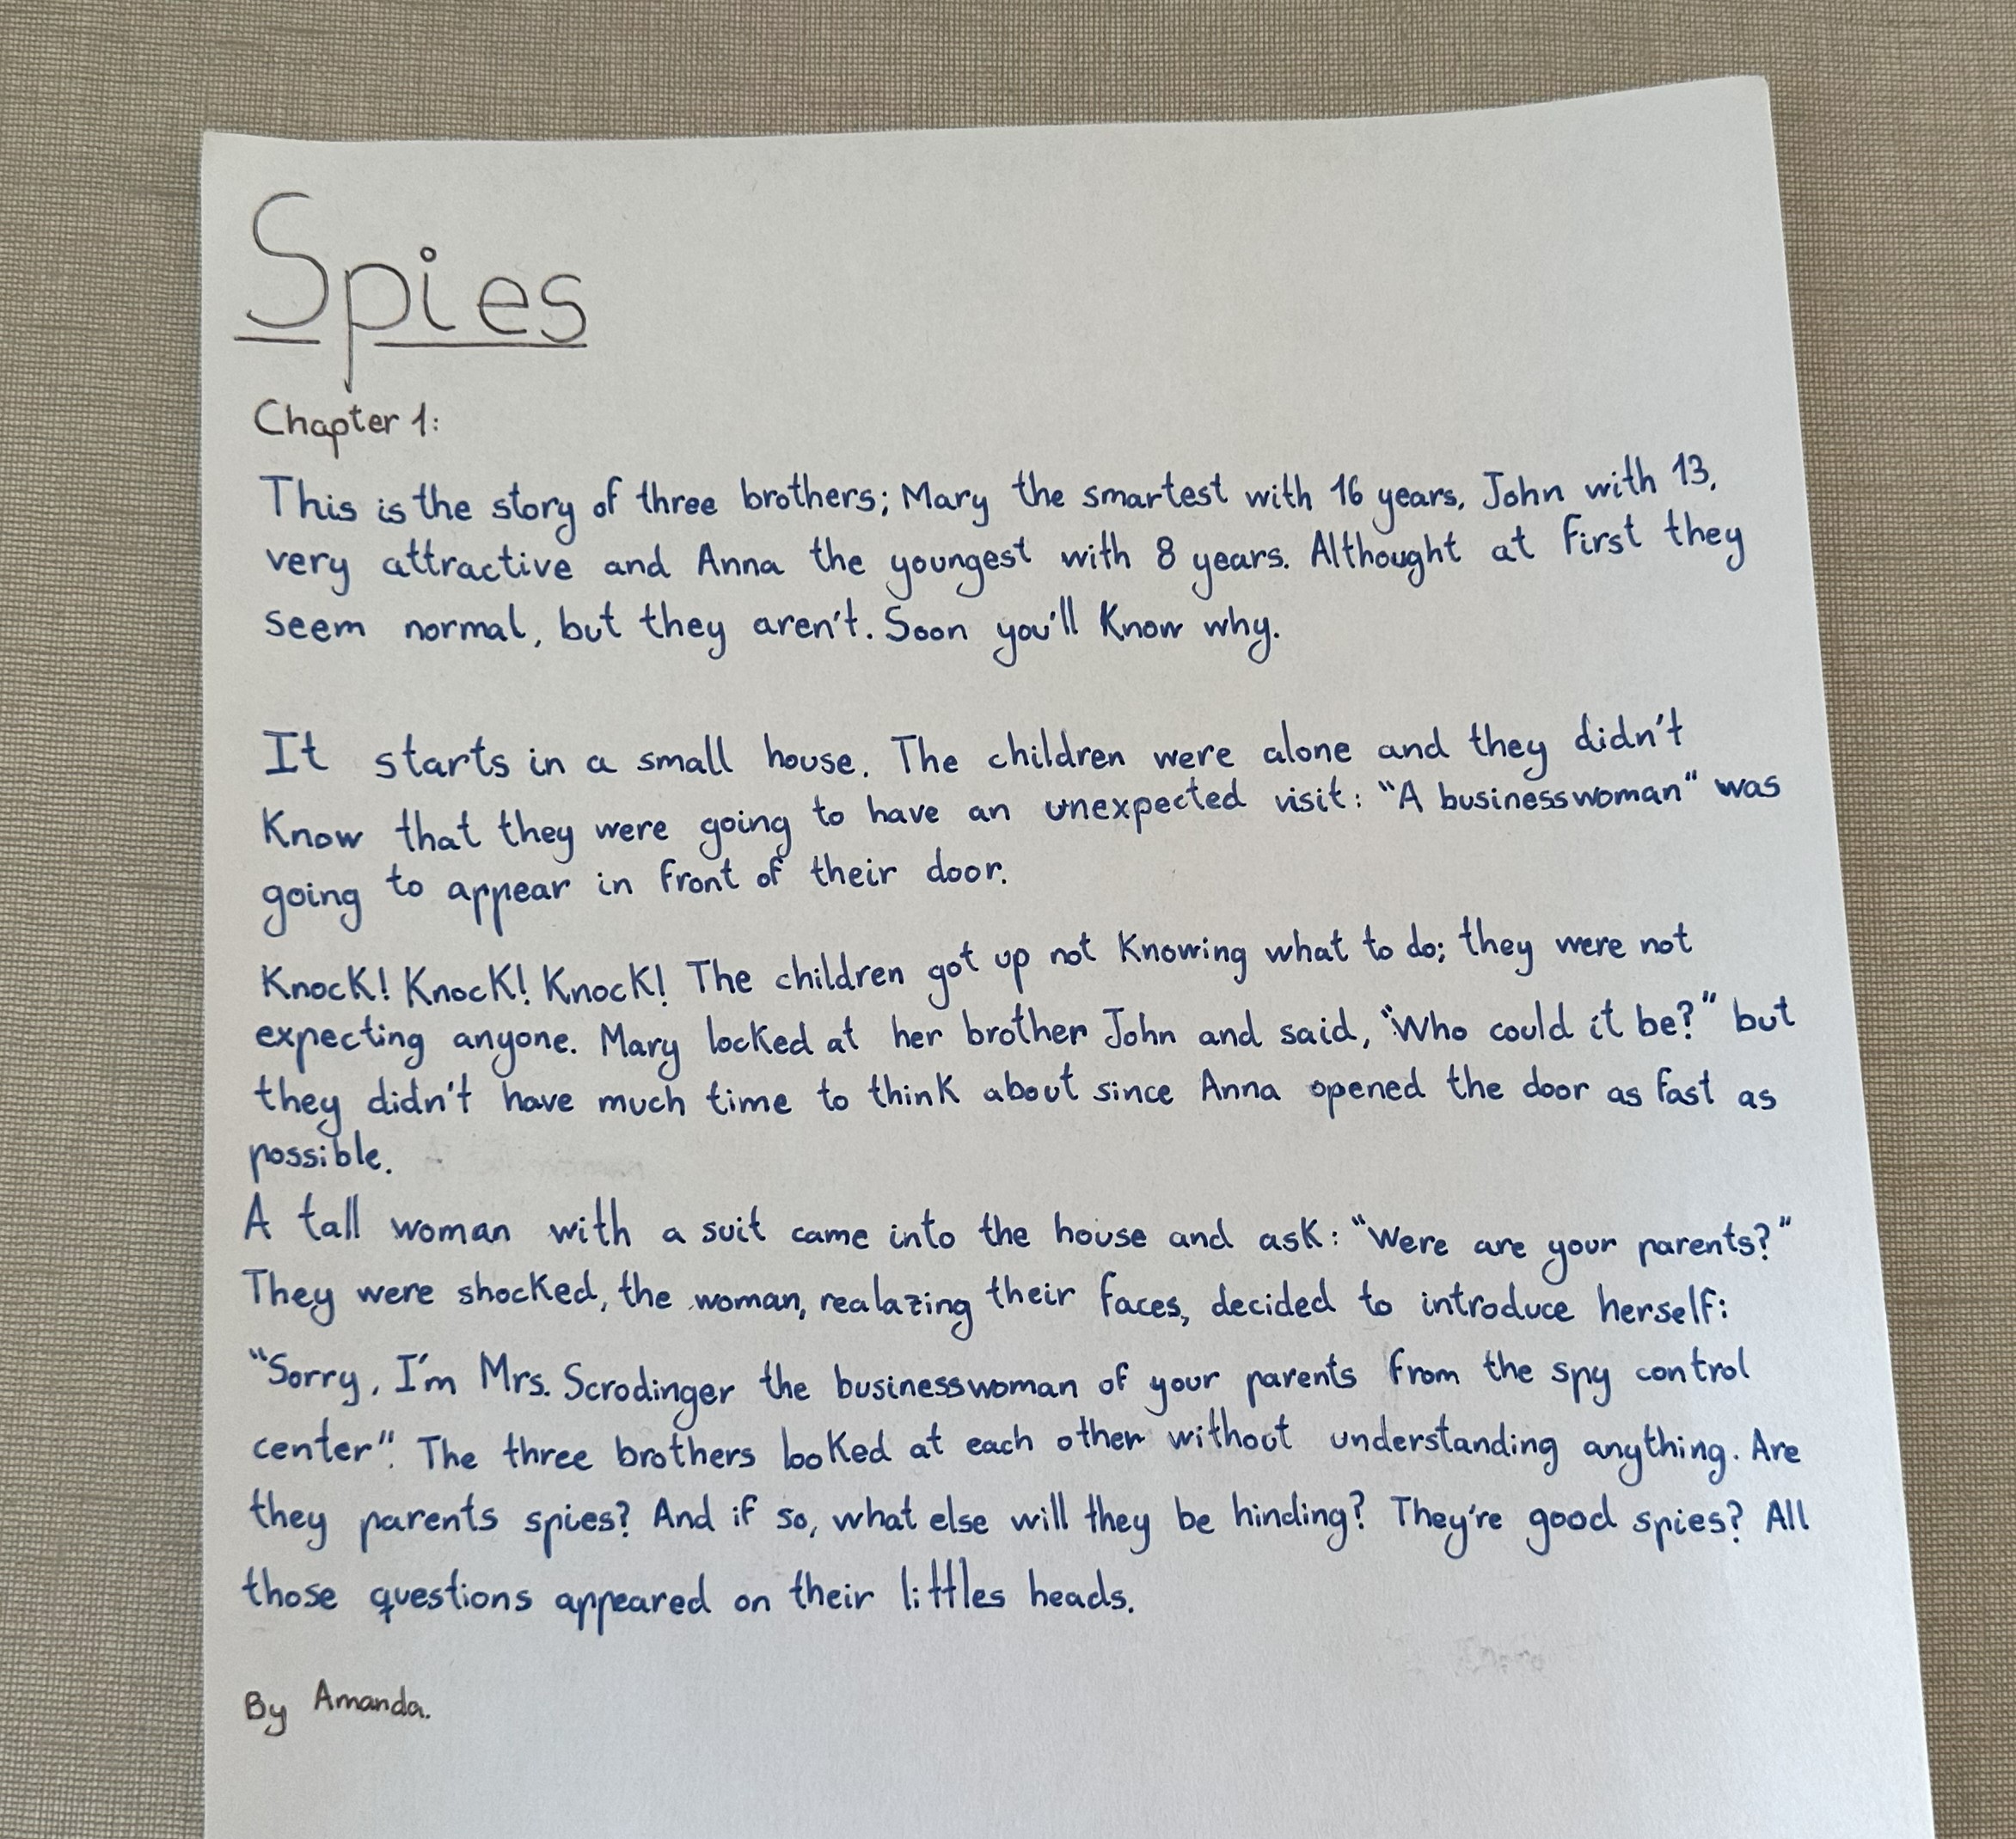 Spies
Chapter 1:
This is the story of three brothers; Mary the smartest with 16 years, John with 13,
very attractive and Anna the youngest with 8 years. Althought at first they
seem normal, but they aren't. Soon you'll Know why.
It starts in a small house. The children were alone and they didn't
Know that they were going to have an unexpected visit: "A businesswoman" was
going to appear in front of their door.
Knock! Knock! Knock! The children got up not Knowing what to do; they were not
expecting anyone. Mary locked at her brother John and said, "Who could it be?" but
they didn't have much time to think about since Anna opened the door as fast as
possible.
A tall woman with a suit came into the house and ask: "Were are your parents?"
They were shocked, the woman, realazing their faces, decided to introduce herself:
"Sorry, I'm Mrs. Scrodinger the businesswoman of your parents from the spy control
center". The three brothers looked at each other without understanding anything. Are
they parents spies? And if so, what else will they be hinding? They're good spies? All
those questions appeared on their littles heads.
By Amanda.